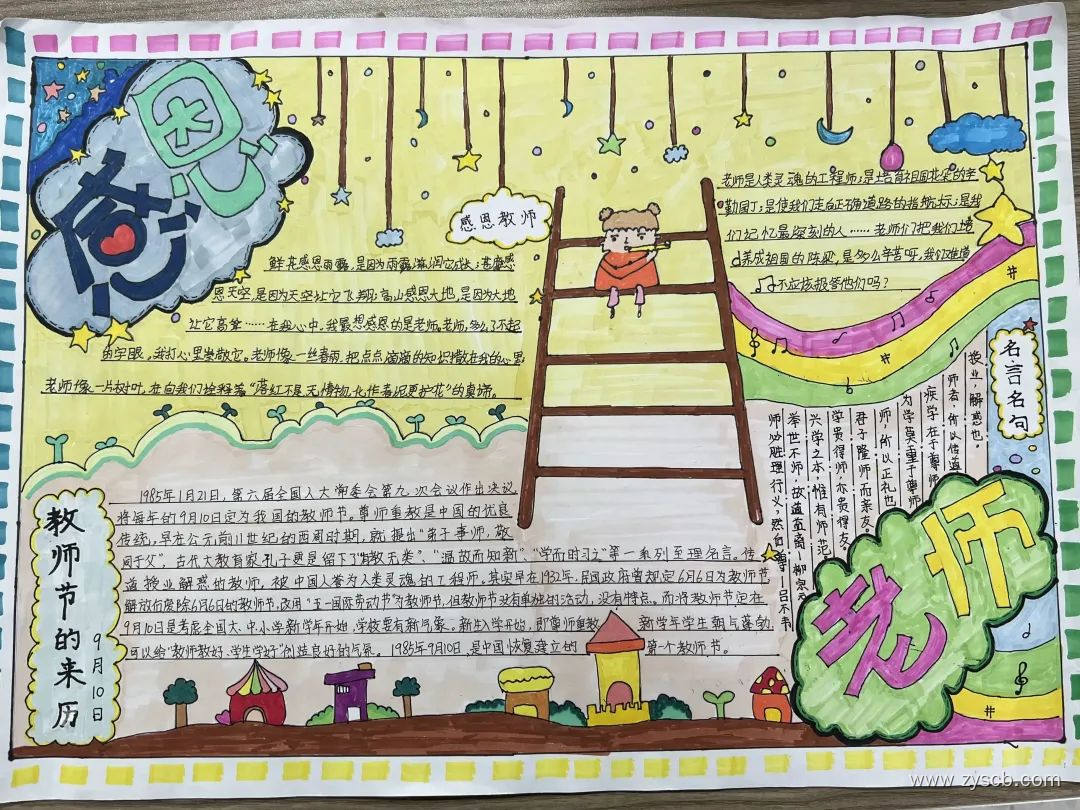 感恩
感恩教师
鲜花感恩雨露,是因为雨露滋润它成长;苍鹰感
恩天空,是因为天空让它飞翔;高山感恩大地,是因为大地
让它高耸……在我心中,我最想感恩的是老师。老师,多么了不起
的字眼,我打心里崇敬它。老师像一丝春雨,把点点滴滴的知识撒在我的心里
老师像一片树叶,在向我们诠释着“落红不是无情物,化作春泥更护花”的真谛。
老师是人类灵魂的工程师;是培育祖国花朵的辛
勤园丁;是使我们走向正确道路的指航标;是我
们记忆最深刻的人……老师们把我们培
养成祖国的栋梁,是多么辛苦呀,我们难道
不应该报答他们吗?
名言名句
接业,解惑也。
师者,所以传道
疾学在于尊师
为学莫重于尊师
师,所以正礼也
君子隆师而亲友。
学贵得师,亦贵得友。
兴学之本,惟有师范
举世不师,故道益离 柳宗元
师必胜理行义,然后尊—吕不韦
教师节的来历
9月10日
1985年1月21日,第六届全国人大常委会第九次会议作出决议
将每年的9月10日定为我国的教师节。尊师重教是中国的优良
传统,早在公元前11世纪的西周时期,就提出“弟子事师,敬
同于父”,古代大教育家孔子更是留下了“有教无类”、“温故而知新”、“学而时习之”等一系列至理名言。传
道授业解惑的教师,被中国人誉为人类灵魂的工程师。其实早在1932年,民国政府曾规定6月6日为教师节
解放后废除6月6日的教师节,改用“五一国际劳动节”为教师节,但教师节没有单独的活动,没有特点。而将教师节定在
9月10日是考虑全国大、中小学新学年开始,学校要有新气象。新生入学开始,即尊师重教 新学年学生朝气蓬勃,
可以给“教师教好、学生学好”创造良好的气氛。1985年9月10日,是中国恢复建立的 第一个教师节。
老师
www.zyscb.com